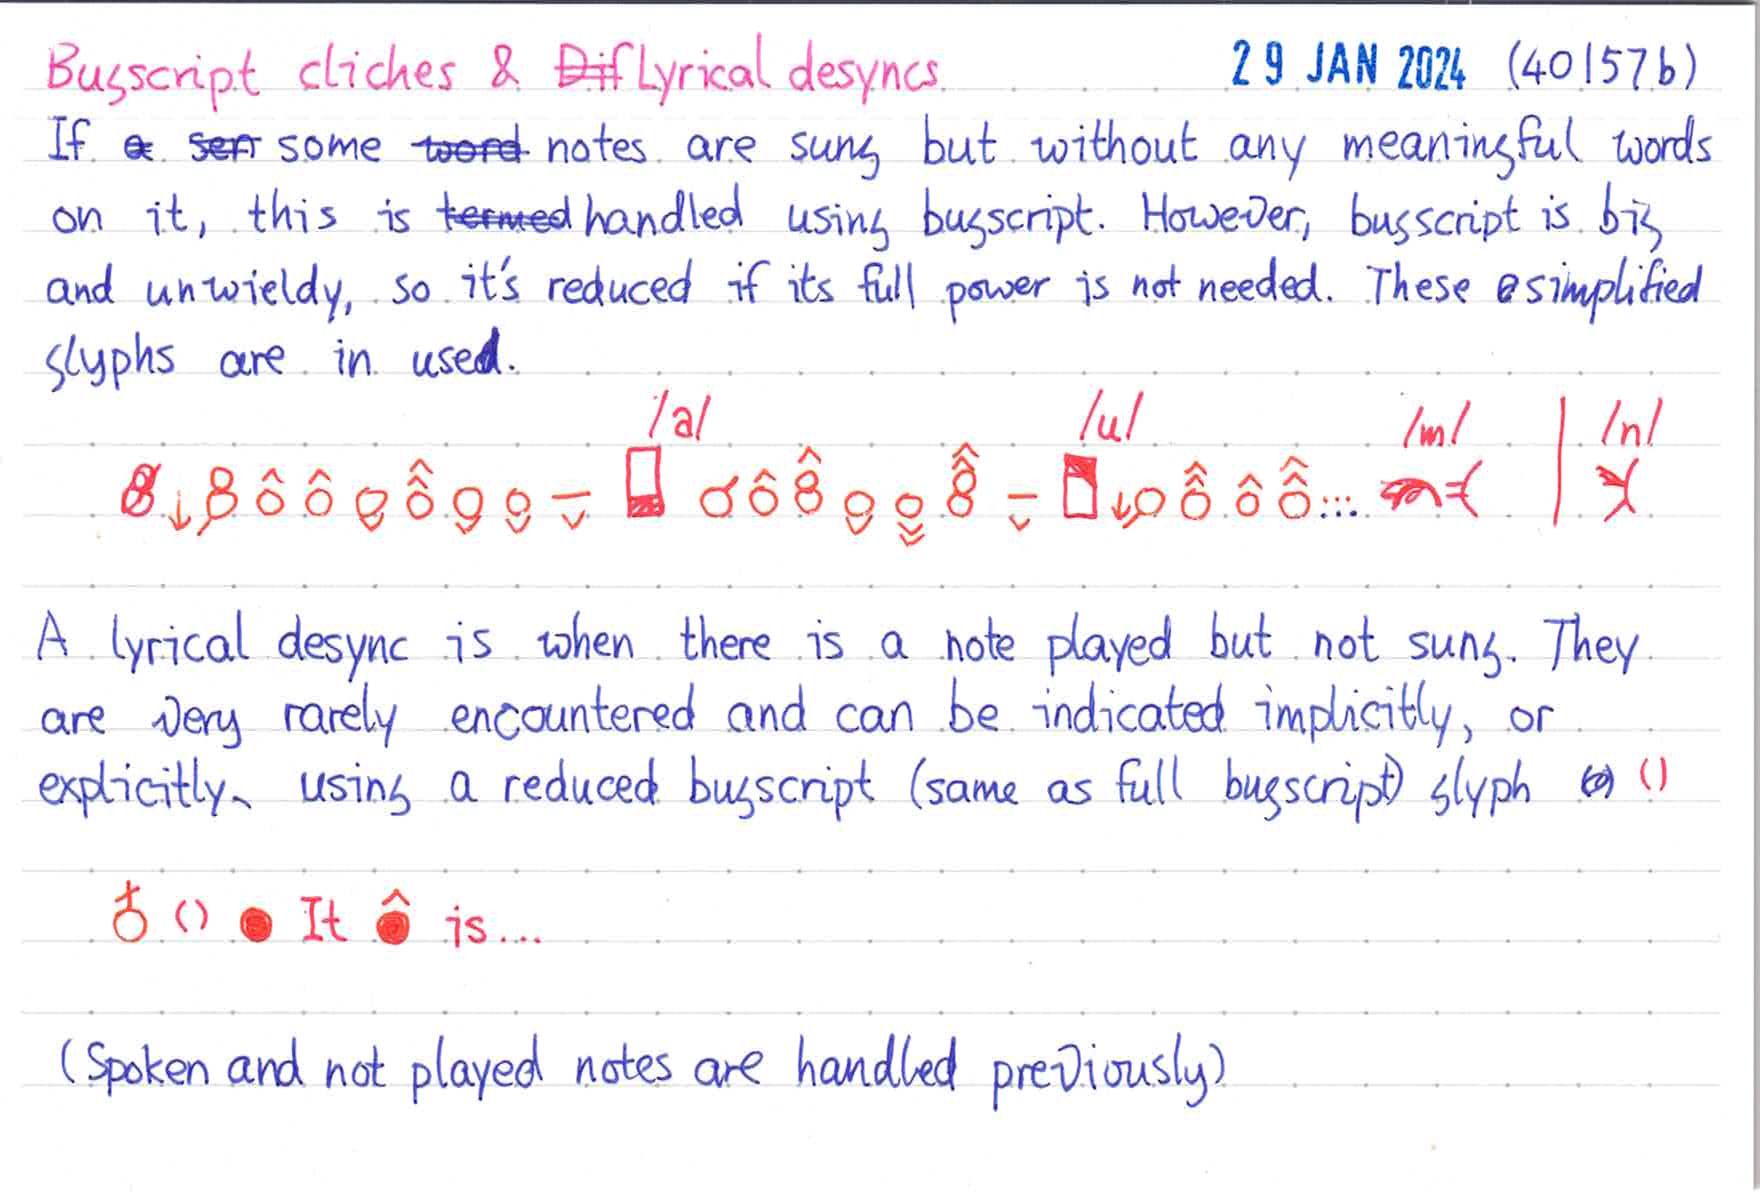 Bugscript cliches & Dif Lyrical desyncs 29 JAN 2024 (40157b)
If a sen some word notes are sung but without any meaningful words
on it, this is termed handled using bugscript. However, bugscript is big
and unwieldy, so it's reduced if its full power is not needed. These simplified
glyphs are in used.
/a/ /u/ /m/ | /n/
A lyrical desync is when there is a note played but not sung. They
are very rarely encountered and can be indicated implicitly, or
explicitly, using a reduced bugscript (same as full bugscript) glyph ()
() It is...
(Spoken and not played notes are handled previously)